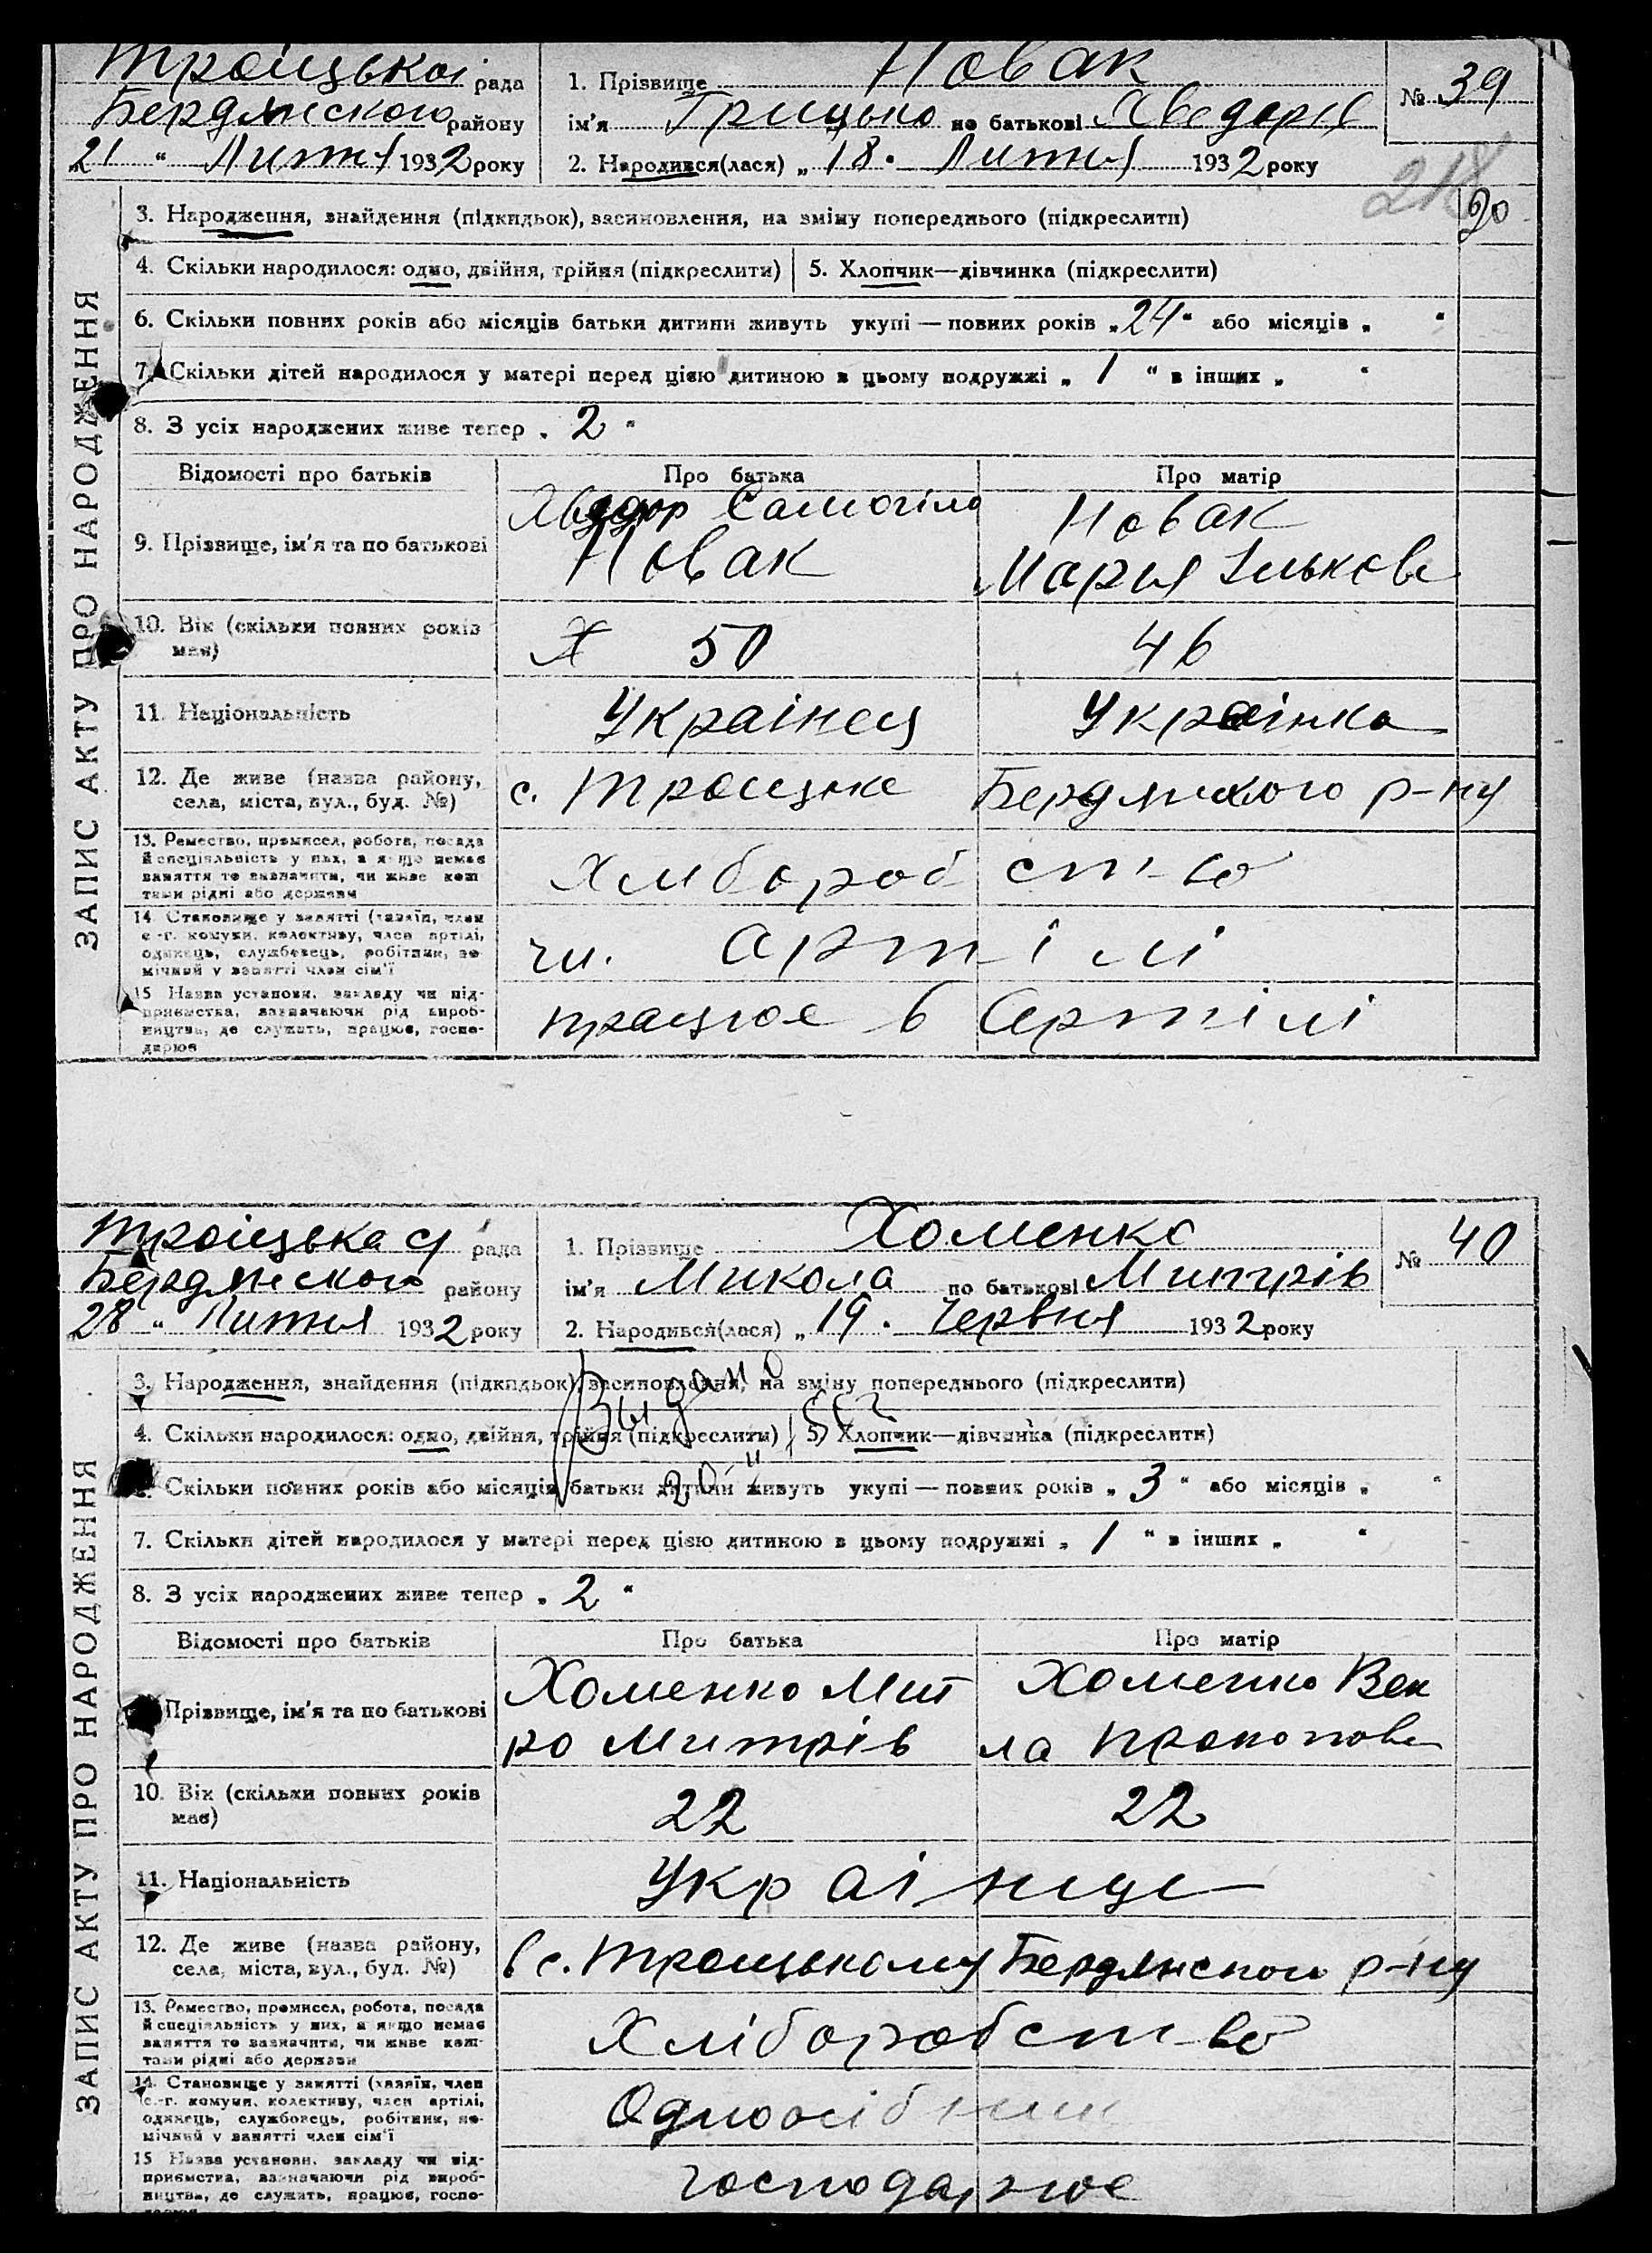 Троіцькоі рада
Бердянского району
„21“ Липня 1932 року
1. Прізвище Новак
ім'я Грицько по батькові Хведорів
2. Народився(лася) „18. Липня 1932 року
№ 39
218
90
ЗАПИС АКТУ ПРО НАРОДЖЕННЯ
3. Народження, знайдення (підкидьок), засиновлення, на зміну попереднього (підкреслити)
4. Скільки народилося: одно, двійня, трійня (підкреслити)
5. Хлопчик—дівчинка (підкреслити)
6. Скільки повних років або місяців батьки дитини живуть укупі — повних років „24“ або місяців „ “
7. Скільки дітей народилося у матері перед цією дитиною в цьому подружжі „ 1 “ в інших „ “
8. З усіх народжених живе тепер „ 2 “
Відомості про батьків
Про батька
Про матір
9. Прізвище, ім'я та по батькові
Новак
Новак
Мария Ількова
10. Вік (скільки повних років має)
Х 50
46
11. Національність
Украінец
Украінка
12. Де живе (назва району,
села, міста, вул., буд. №)
с. Троіцке Бердянского р-ну
13. Ремество, промисел, робота, посада
й спеціяльність у них, а якщо немає
заняття то зазначити, чи живе кош-
тами рідні або держави
Хлібороб ст-во
14. Становище у занятті (хазяїн, член
с.-г. комуни, колективу, член артілі,
одинець, службовець, робітник, по-
мічний у занятті член сім'ї
чл. артілі
15 Назва установи, закладу чи під-
приємства, зазначаючи рід вироб-
ництва, де служить, працює, госпо-
дарює
працює в Артілі
Троіцька рада
Бердянского району
28 „ Липня 1932 року
1. Прізвище Хоменко
ім'я Микола по батькові Митрів
2. Народився(лася) „19. Червня 1932 року
№ 40
ЗАПИС АКТУ ПРО НАРОДЖЕННЯ
3. Народження, знайдення (підкидьок), засиновлення, на зміну попереднього (підкреслити)
Выдано
4. Скільки народилося: одно, двійня, трійня (підкреслити)
5. Хлопчик—дівчинка (підкреслити)
Скільки повних років або місяців батьки дитини живуть укупі — повних років „ 3 “ або місяців „ “
7. Скільки дітей народилося у матері перед цією дитиною в цьому подружжі „ 1 “ в інших „ “
8. З усіх народжених живе тепер „ 2 “
Відомості про батьків
Про батька
Про матір
Прізвище, ім'я та по батькові
Хоменко Мит
ро Митрів
Хоменко Век
ла Прокопова
10. Вік (скільки повних років
має)
22
22
11. Національність
Украінци
12. Де живе (назва району,
села, міста, вул., буд. №)
в с. Троіцькому Бердянского р-ну
13. Ремество, промисел, робота, посада
й спеціяльність у них, а якщо немає
заняття то зазначити, чи живе кош-
тами рідні або держави
Хліборобст-во
14. Становище у занятті (хазяїн, член
с.-г. комуни, колективу, член артілі,
одинець, службовець, робітник, по-
мічний у занятті член сім'ї
Одноосібник
15 Назва установи, закладу чи під-
приємства, зазначаючи рід вироб-
ництва, де служить, працює, госпо-
господарює